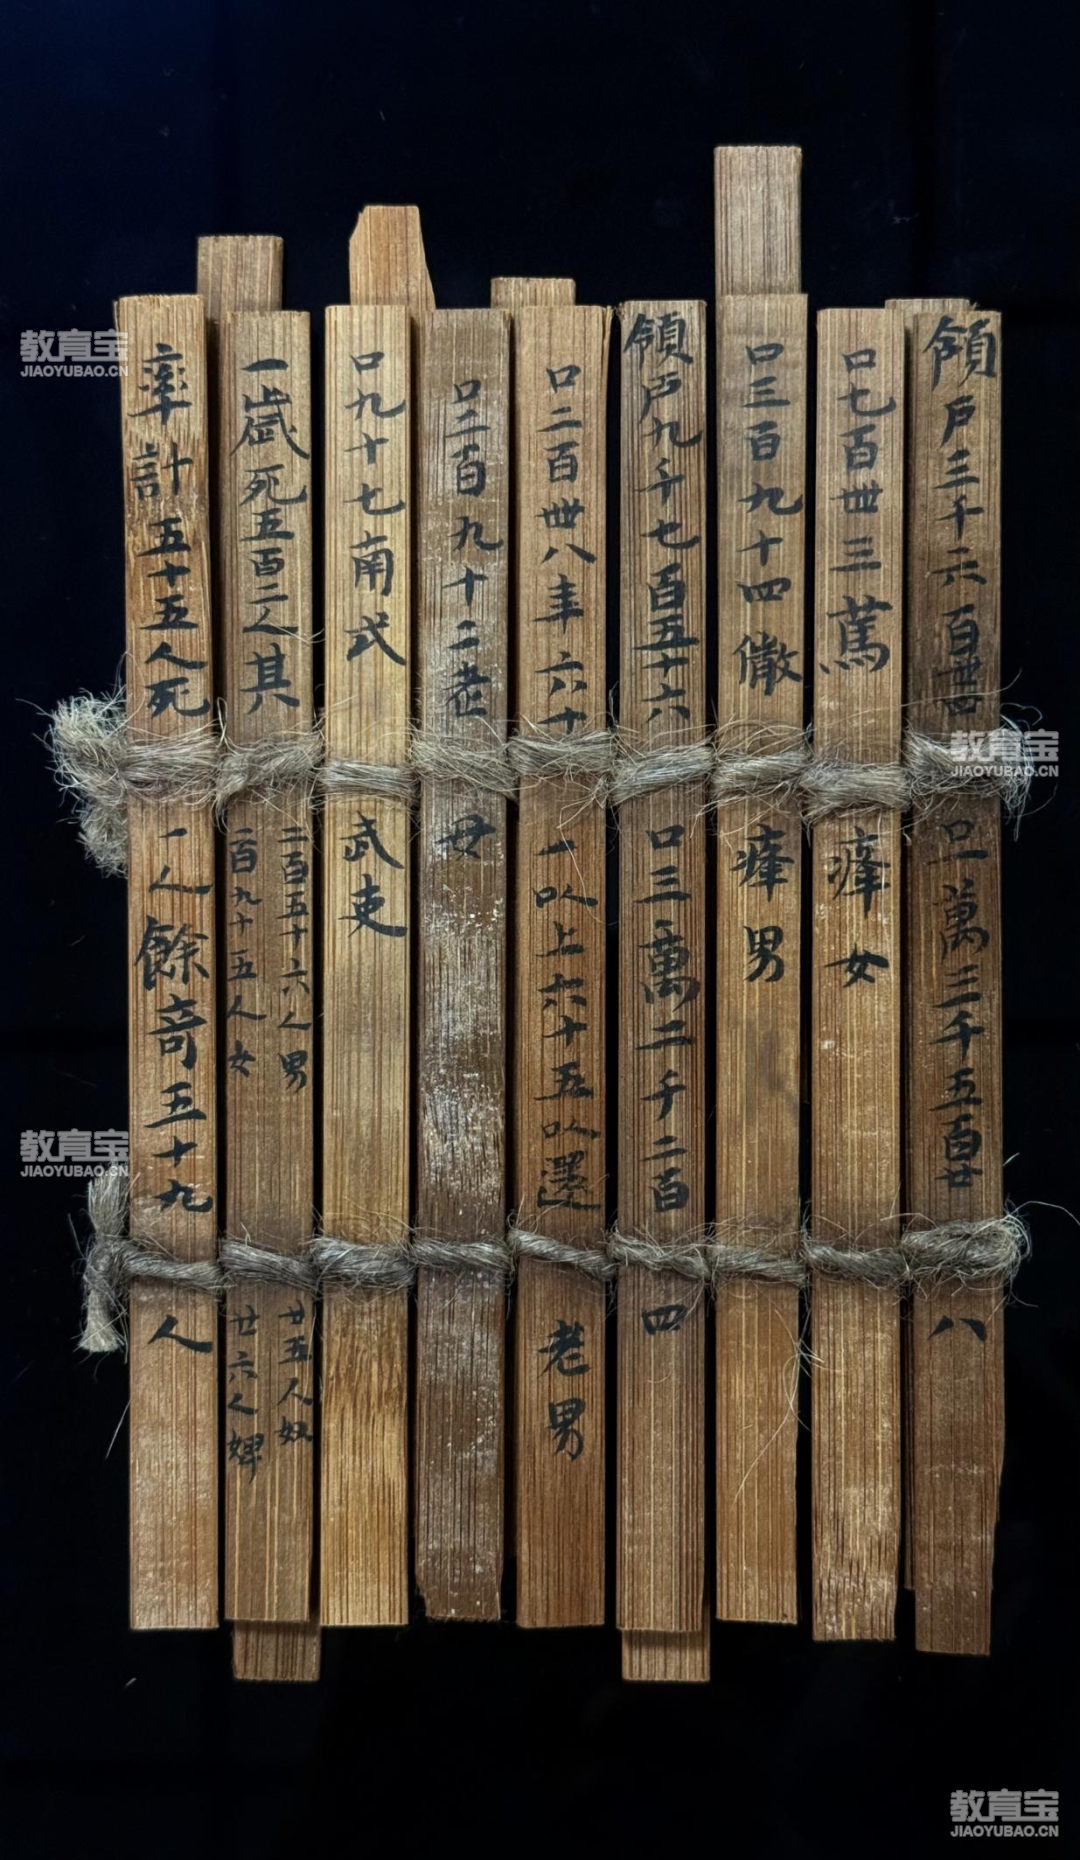 領戶三千六百卌四口一萬三千五百廿八
口七百卌三蔿瘒女
口三百九十四儌瘒男
領戶九千七百五十六口三萬二千二百四
口二百卌八年六十一以上六十五以還老男
口二百九十二老母
口九十七南弍武吏
一歲死五百二人其二百五十六人男廿五人奴
二百九十五人女廿六人婢
率計五十五人死一人餘奇五十九人
教育宝
JIAOYUBAO.CN
教育宝
JIAOYUBAO.CN
教育宝
JIAOYUBAO.CN
教育宝
JIAOYUBAO.CN